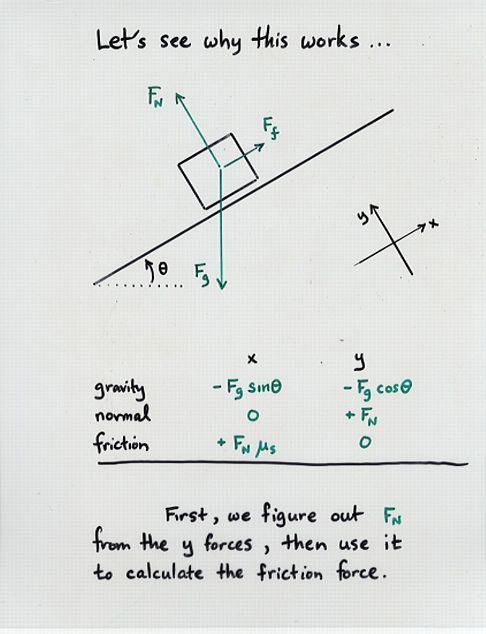 Let's see why this works ...
F_N
F_f
y
x
θ
F_g
x y
gravity - F_g sinθ - F_g cosθ
normal 0 + F_N
friction + F_N μ_s 0
First, we figure out F_N
from the y forces, then use it
to calculate the friction force.